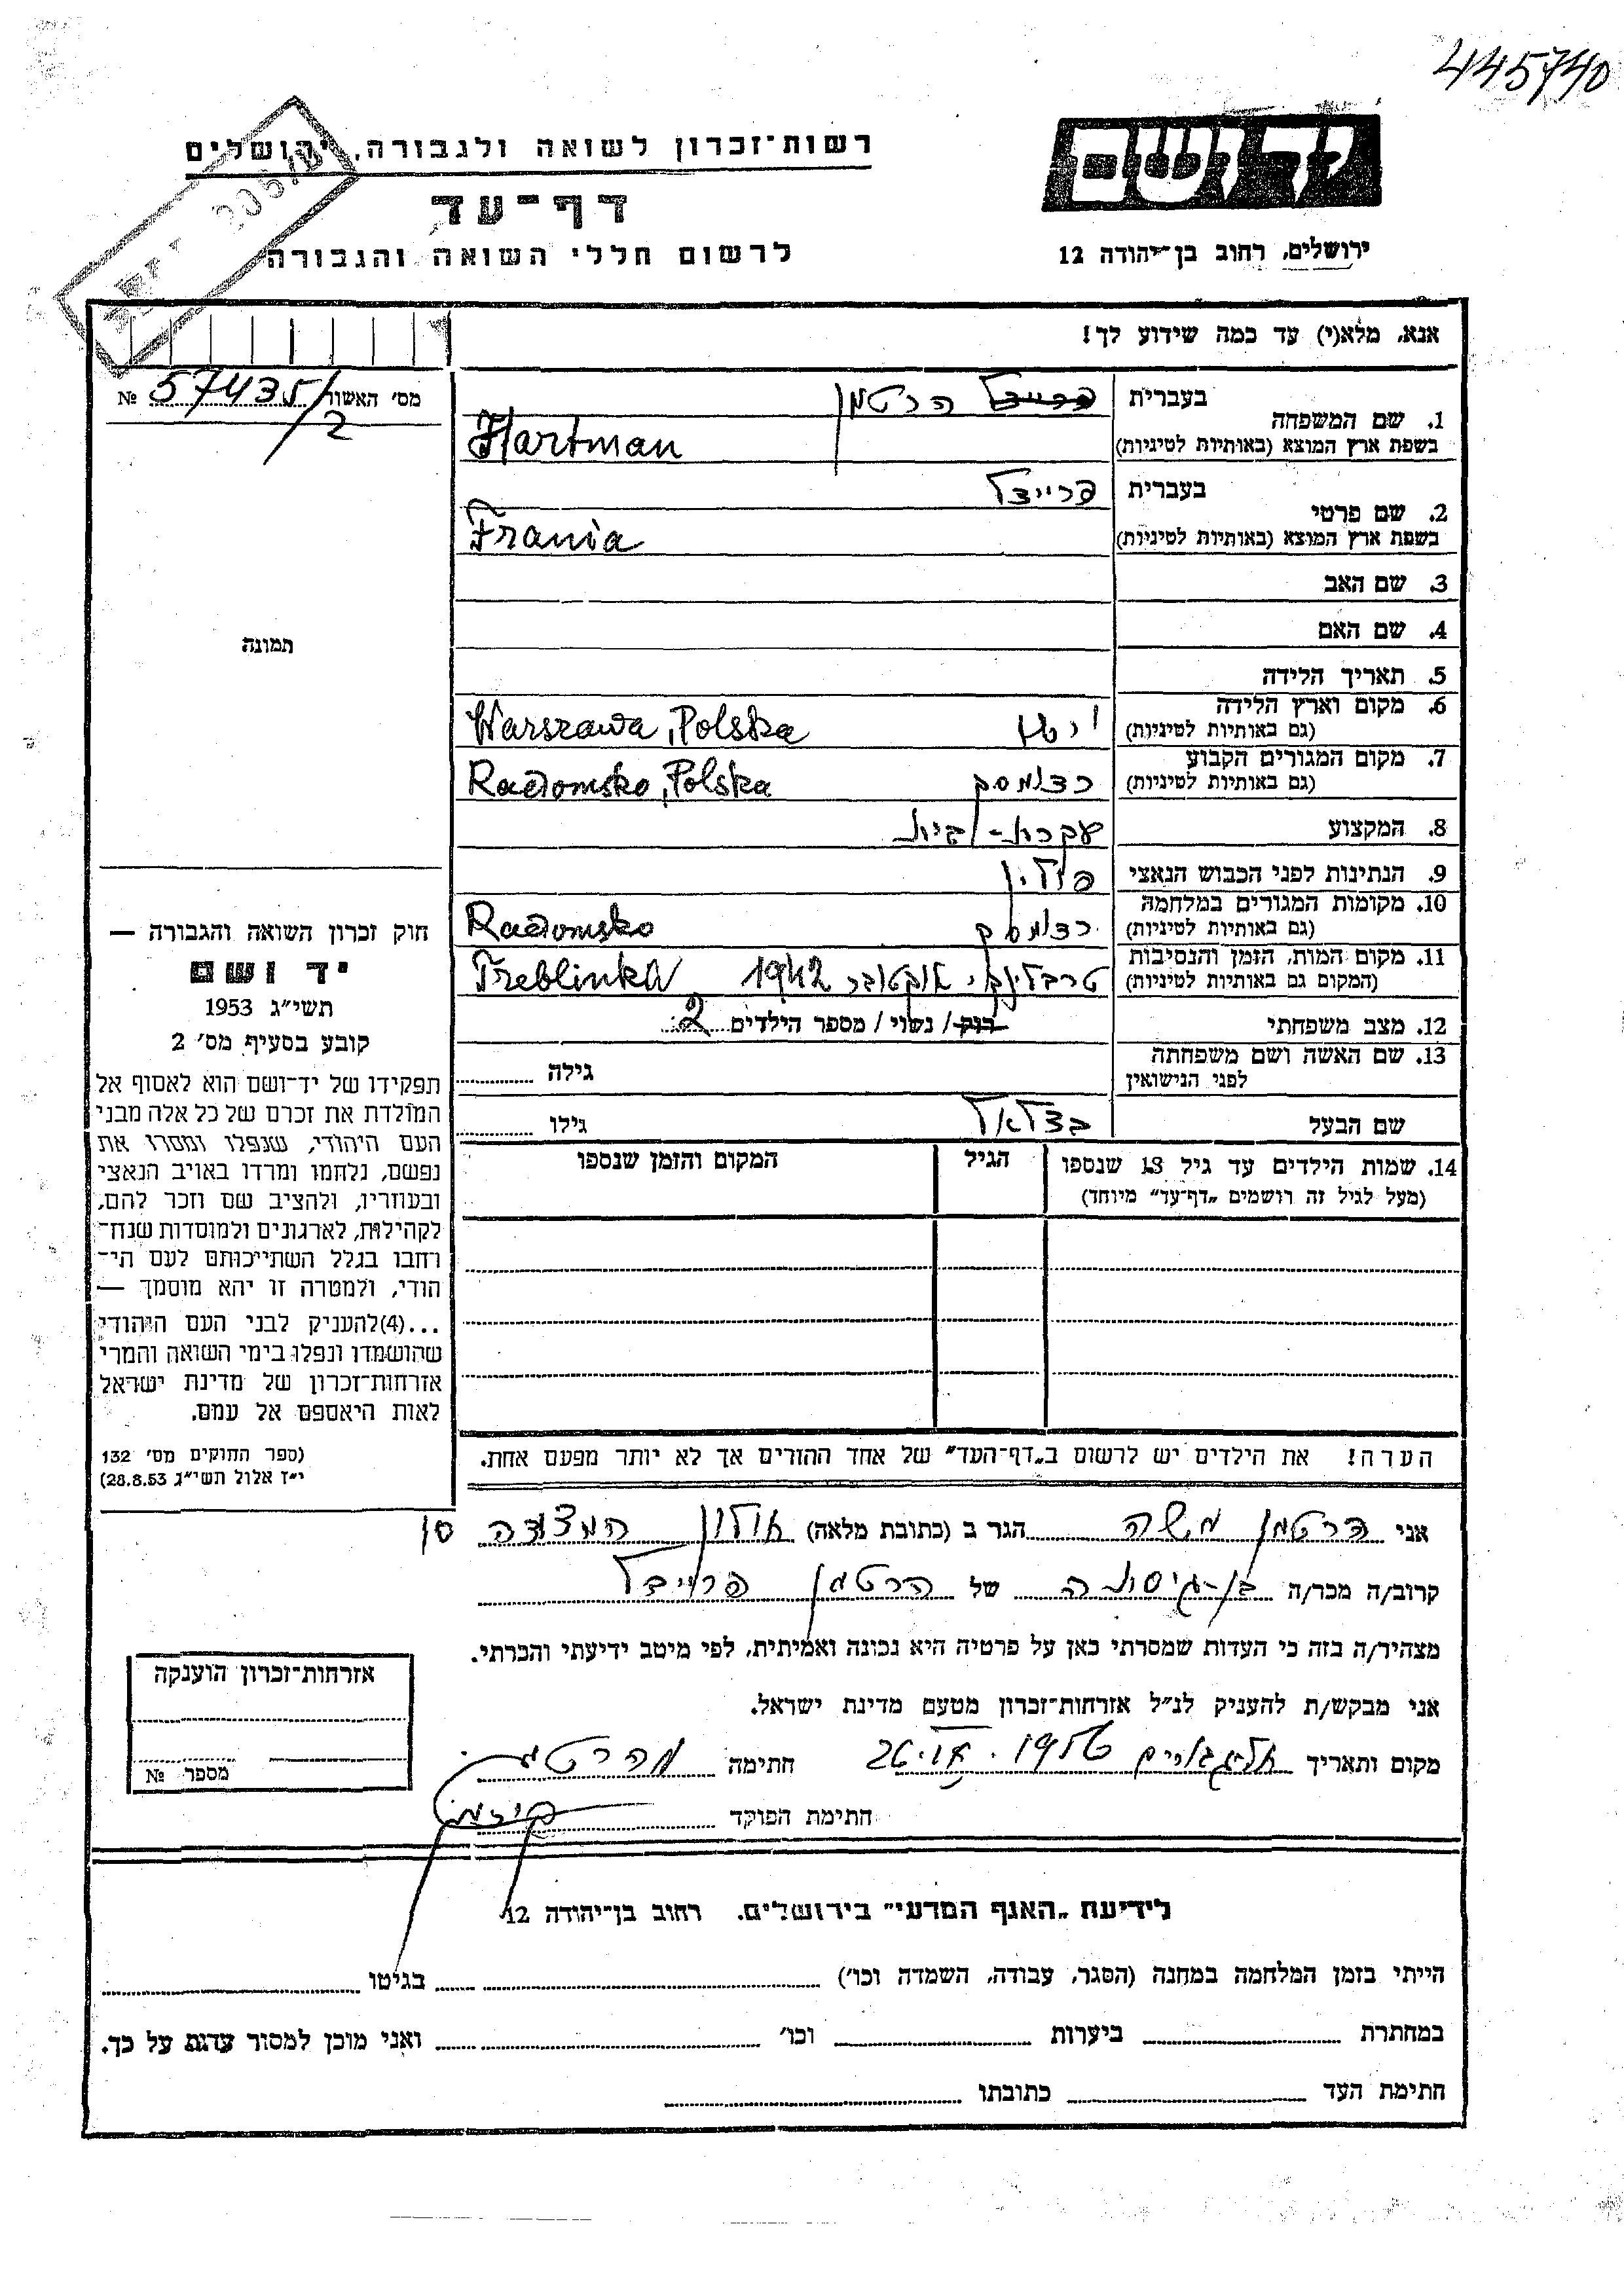 445740
רשות־זכרון לשואה ולגבורה, ירושלים
דף־עד
לרשום חללי השואה והגבורה
יד ושם
ירושלים, רחוב בן־יהודה 12
אנא, מלא(י) עד כמה שידוע לך!
מס׳ האשור 57435/2 №
1. שם המשפחה
בעברית הרטמן
בשפת ארץ המוצא (באותיות לטיניות) Hartman
2. שם פרטי
בעברית פריידל
בשפת ארץ המוצא (באותיות לטיניות) Frania
3. שם האב
4. שם האם
5. תאריך הלידה
6. מקום וארץ הלידה
(גם באותיות לטיניות) Warszawa, Polska
7. מקום המגורים הקבוע
(גם באותיות לטיניות) רדומסק Radomsko, Polska
8. המקצוע עקרת-בית
9. הנתינות לפני הכבוש הנאצי פולין
10. מקומות המגורים במלחמה
(גם באותיות לטיניות) רדומסק Radomsko
11. מקום המות, הזמן והנסיבות
(המקום גם באותיות לטיניות) טרבלינקי אוקטובר 1942 Treblinka
12. מצב משפחתי רוק / נשוי / מספר הילדים 2
13. שם האשה ושם משפחתה
לפני הנישואין גילה
שם הבעל בצלאל גילו
14. שמות הילדים עד גיל 13 שנספו
(מעל לגיל זה רושמים „דף־עד” מיוחד)
הגיל
המקום והזמן שנספו
הערה! את הילדים יש לרשום ב„דף־העד” של אחד ההורים אך לא יותר מפעם אחת.
תמונה
חוק זכרון השואה והגבורה —
יד ושם
תשי״ג 1953
קובע בסעיף מס׳ 2
תפקידו של יד־ושם הוא לאסוף אל
המולדת את זכרם של כל אלה מבני
העם היהודי, שנפלו ומסרו את
נפשם, נלחמו ומרדו באויב הנאצי
ובעוזריו, ולהציב שם וזכר להם,
לקהילות, לארגונים ולמוסדות שנח־
רחבו בגלל השתייכותם לעם הי־
הודי, ולמטרה זו יהא מוסמך —
...(4)להעניק לבני העם היהודי
שהושמדו ונפלו בימי השואה והמרי
אזרחות־זכרון של מדינת ישראל
לאות היאספם אל עמם.
(ספר החוקים מס׳ 132
י״ז אלול תשי״ג 28.8.53)
אני הרטמן משה הגר ב (כתובת מלאה) אולון המצודה
קרוב/ה מכר/ה בן-גיסתה של הרטמן פריידל
מצהיר/ה בזה כי העדות שמסרתי כאן על פרטיה היא נכונה ואמיתית, לפי מיטב ידיעתי והכרתי.
אני מבקש/ת להעניק לנ״ל אזרחות־זכרון מטעם מדינת ישראל.
מקום ותאריך 1956 חתימה
חתימת הפוקד
אזרחות־זכרון הוענקה
מספר №
לידיעת „האגף המדעי” בירושלים. רחוב בן־יהודה 12
הייתי בזמן המלחמה במחנה (הסגר, עבודה, השמדה וכו׳) בגיטו
במחתרת ביערות וכו׳ ואני מוכן למסור עדות על כך.
חתימת העד כתובתו